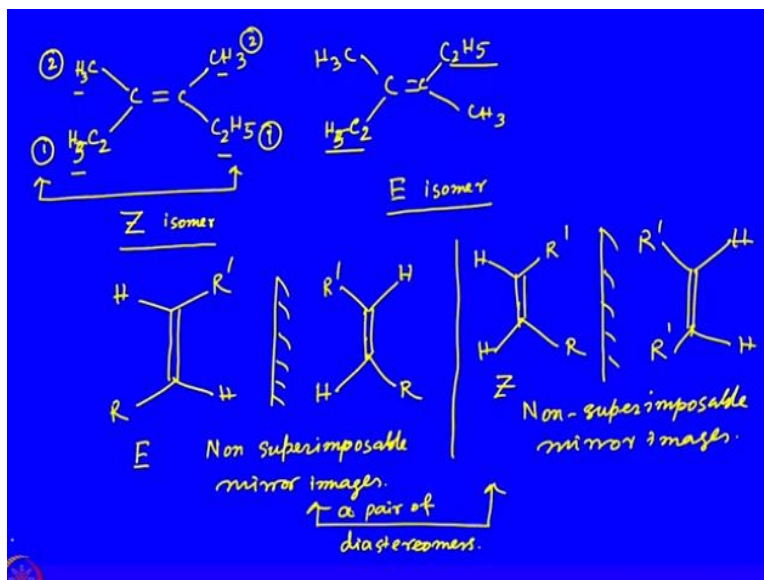 ② H3C CH3 ②
C = C
① H5C2 C2H5 ①
Z isomer
H3C C2H5
C = C
H5C2 CH3
E isomer
H R'
R H
E
R' H
H R
Non superimposable
mirror images.
H R'
H R
Z
R' H
R' H
Non-superimposable
mirror images.
a pair of
diastereomers.